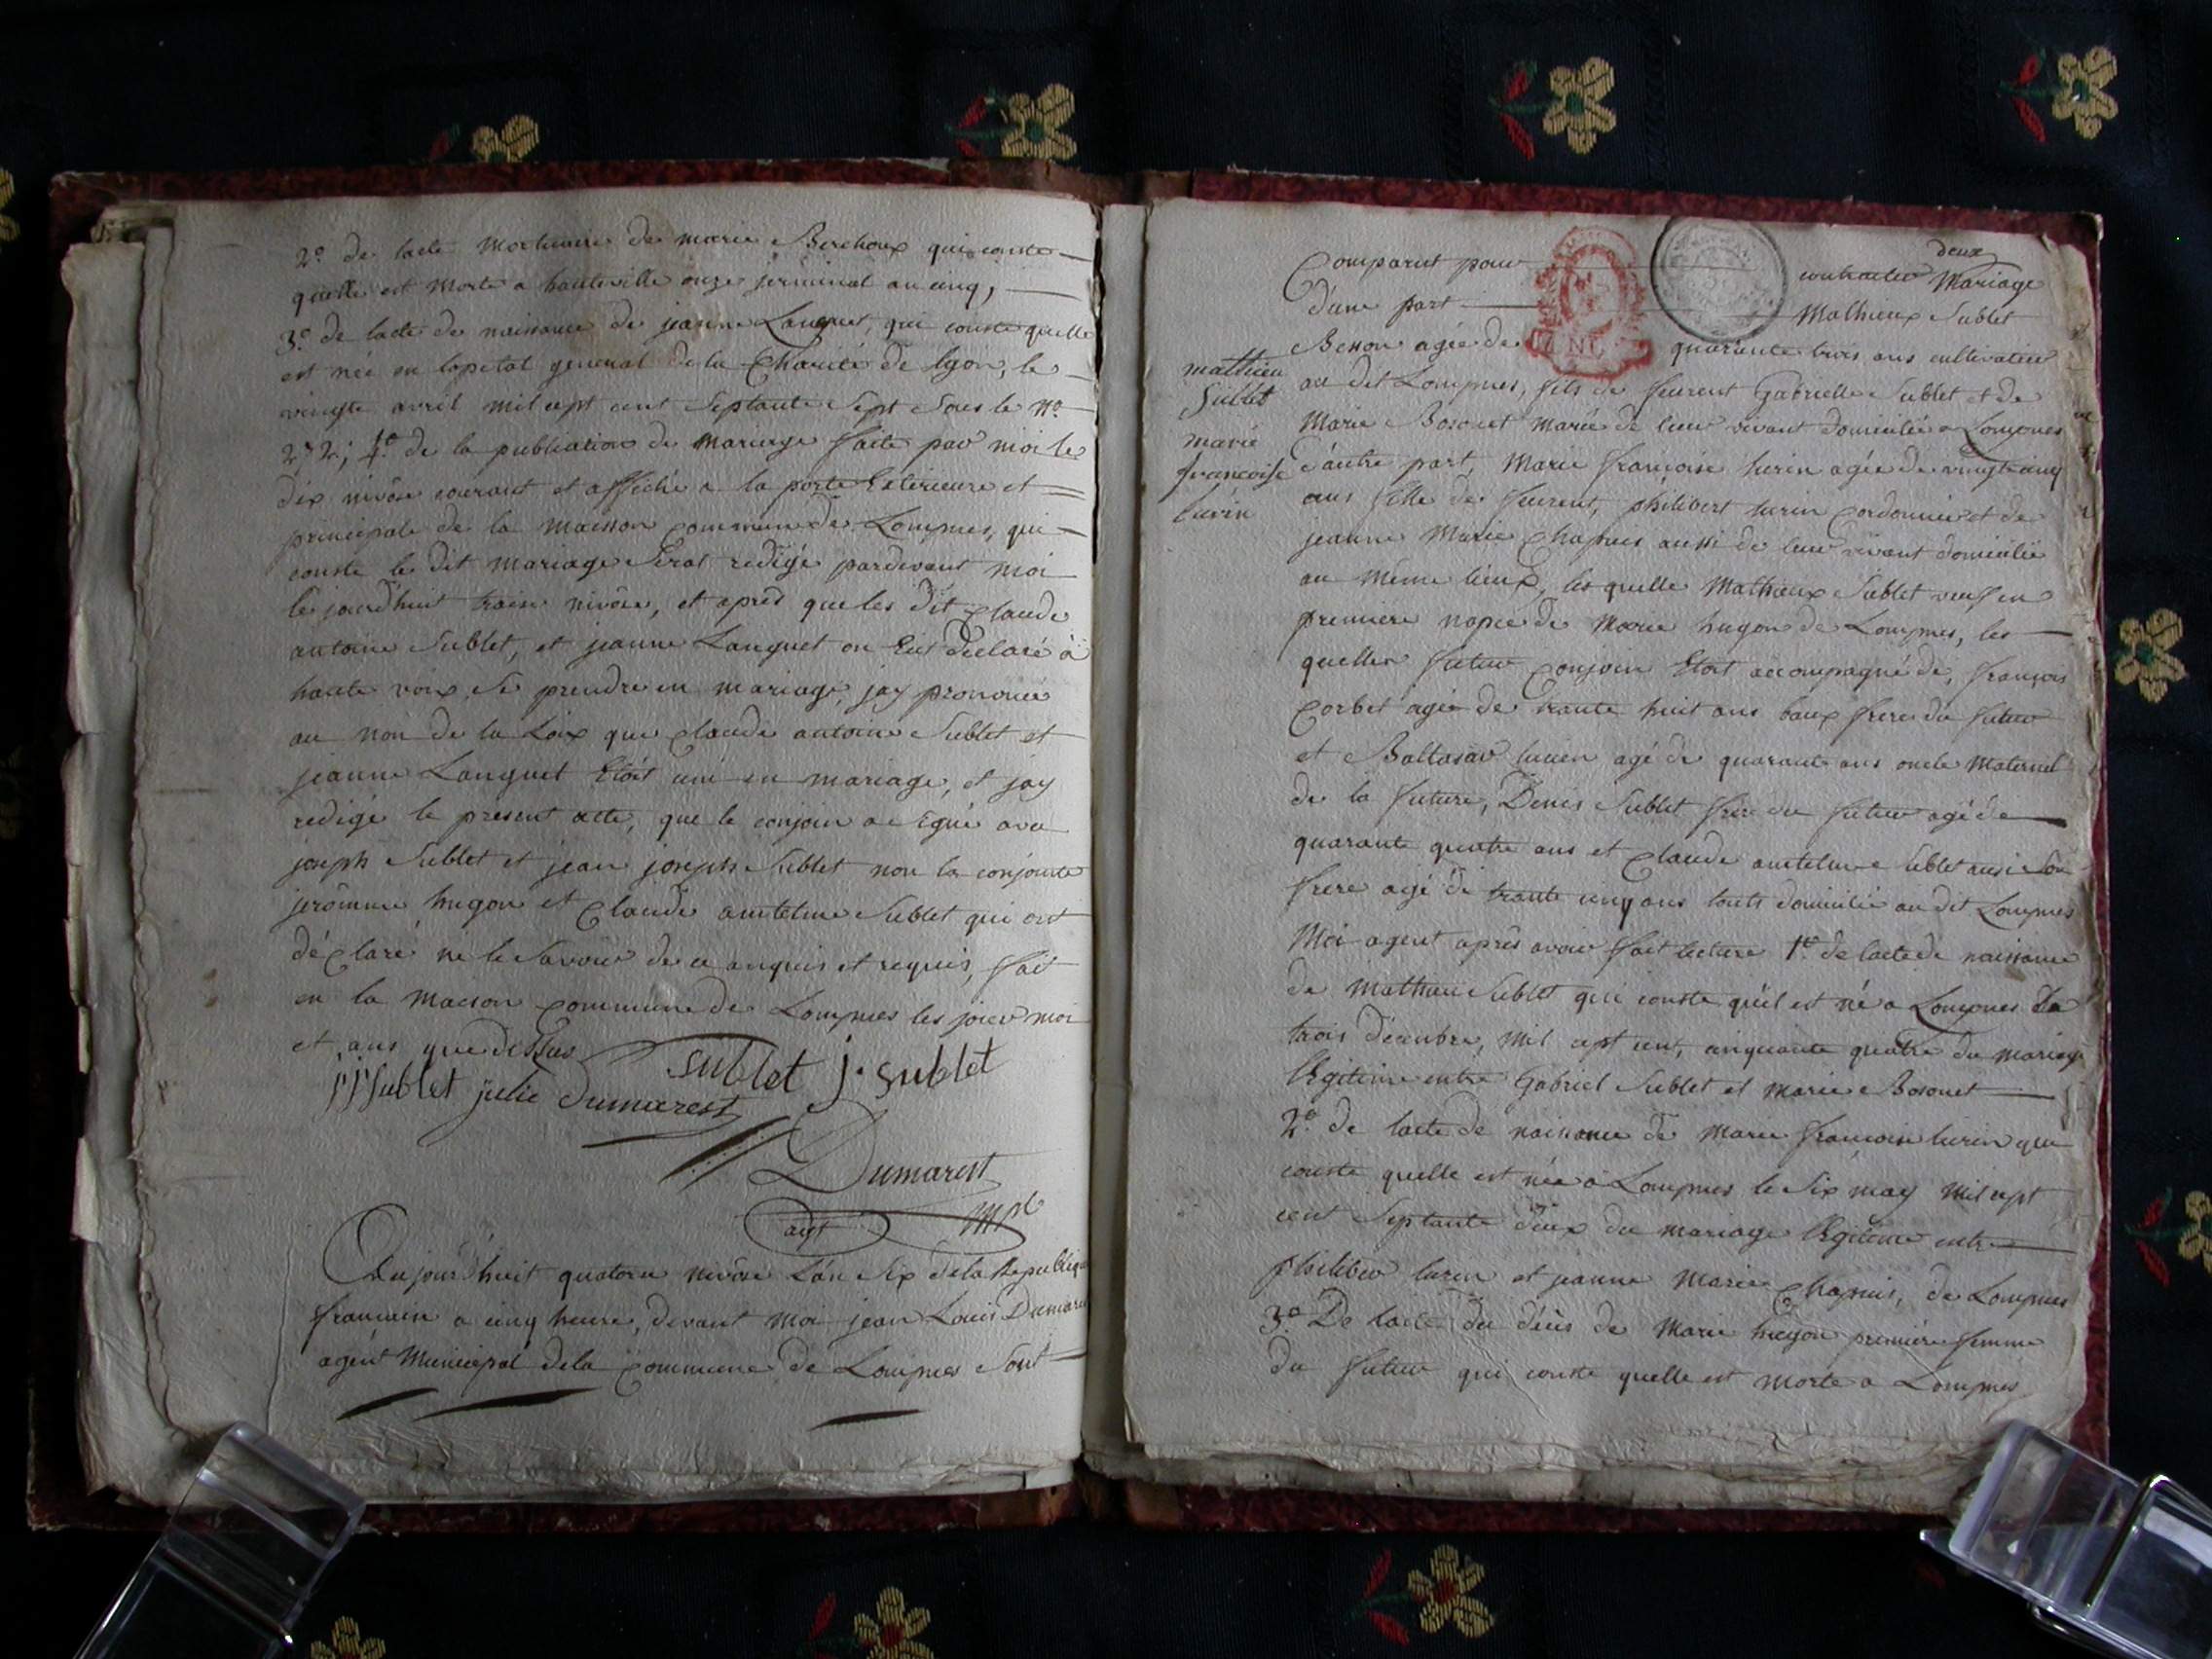 2° de lacte Mortuaire de marie Berchoux qui conste
quelle est Morte a hauteville onze jerminal an cinq,
3° de lacte de naissance de jeanne Languet, qui conste quelle
est née en lopital general de la Charité de lyon, le
vingte avril mil sept cent Septante Sept Sous le N°
272; 4° de la publication de mariage faite par moi le
dix nivôse courant et affiché a la porte Exterieure et
principale de la maison commune de Lompnes, qui
conste le dit mariage Serat redigé pardevant moi
le jourd'huit traise nivôse, et aprês que les dit Claude
antoine Sublet, et jeanne Languet on Eut déclaré à
haute voix, de prendre en mariage, jay prononcé
au non de la Loix que claude antoine Sublet et
jeanne Languet Etóit uni en mariage, et jay
redigé le present acte, que le conjoin a Signé avec
joseph Sublet et jean joseph Sublet non la conjointe
jerômme hugon et Claude antelme Sublet qui ont
déclaré ne le Savoir de ce enquis et requis, fait
en la maison commune de Lompnes les jour moi
et ans que dessus
sublet j. sublet
jjsublet julie Dumarest
Dumarest
agt mpl
Aujourdhuit quatorze nivôse L'an Six de la Republique
francaise a cinq heure, devant Moi jean Louis Dumarest
agent Municipal de la Commune de Lompnes Sont
deux
Comparut pour contracter Mariage
d'une part Mathieux Sublet
Besson agée de quarante trois ans cultivateur
au dit Lompnes, fils de feurent Gabrielle Sublet et de
Marie Bozonet marié de leur vivant domicilié a Lompnes
mathieu
Sublet
marie
francoise
lurin
d'autre part, Marie françoise lurin agée de vingt cinq
ans fille de feurent, philibert lurin Cordonnier et de
jeanne Marie Chapuis aussi de leur vivant domicilié
au même lieux, les quelle Mathieux Sublet veuf en
premiere nopce de Marie hugon de Lompnes, les
quelles futur conjoin Etoit accompagné de, françois
Corbet agée de trante huit ans baux frere du futur
et Baltasar lucien agé de quarante ans oncle Maternel
de la future, Denis Sublet frere du futur agé de
quarante quatre ans et Claude antelme Sublet ausi Son
frere agé de trante cinq ans touts domicilié au dit Lompnes
Moi agent aprês avoir fait lecture 1° de lacte de naissance
de Mathieu Sublet qui conste qu'il est né a Lompnes Le
trois décembre, mil sept cent, cinquante quatre du mariage
légitime entre Gabriel Sublet et Marie Bozonet
2° de lacte de naissance de Marie françoise lurin qui
conste quelle est née a Lompnes le Six may Mil sept
cent Septante deux du mariage légitime entre
philiber lurin et jeanne Marie Chapuis, de Lompnes
3° De lacte du décès de Marie hugon premiere femme
du futur qui conste quelle est morte a Lompnes